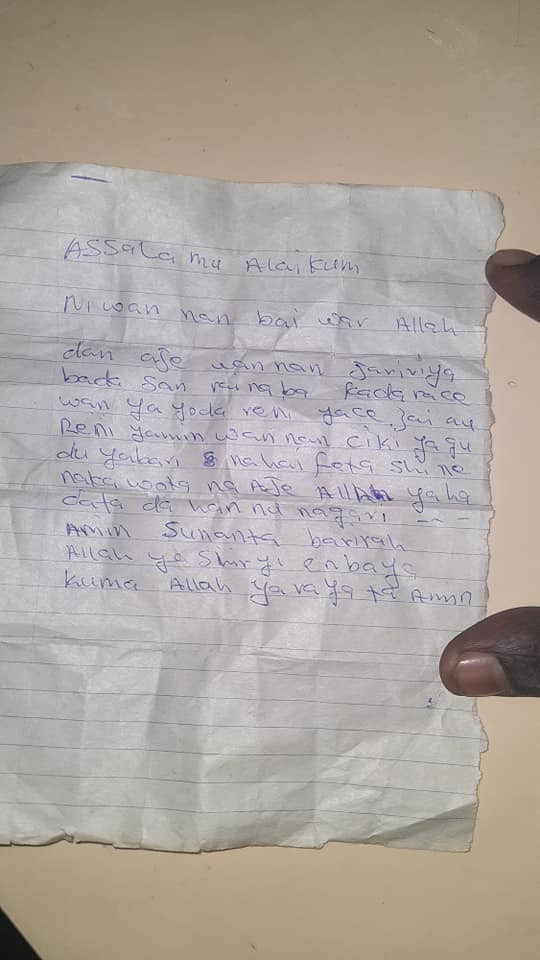 ASSala mu Alaikum
Ni wan nan bai war Allah
dan aje wannan Jaririya
bada San raina ba Kadara ce
wan ya yoda reni yace zai au
Reni yamin wan nan ciki yagu
du yabari nahai feta shi ne
naka wota na Aje Allah yaha
data da hannu nagari
Amin Sunanta barirah
Allah ye Shiryi enbaya
kuma Allah ya raya ta Amin